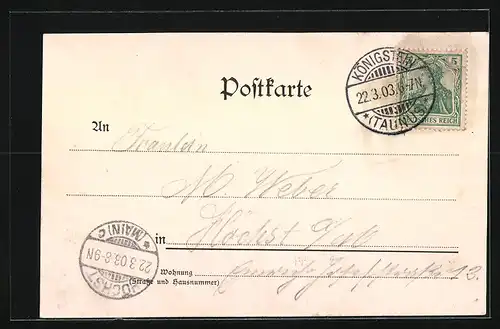 KÖNIGSTEIN
22.3.03.6-7N
*(TAUNUS)*
5
DEUTSCHES REICH
Postkarte
An Fräulein
M. Weber
in Höchst
Wohnung
(Straße und Hausnummer)
12.
HÖCHST
22.3.03.8-9N
*(MAIN)c